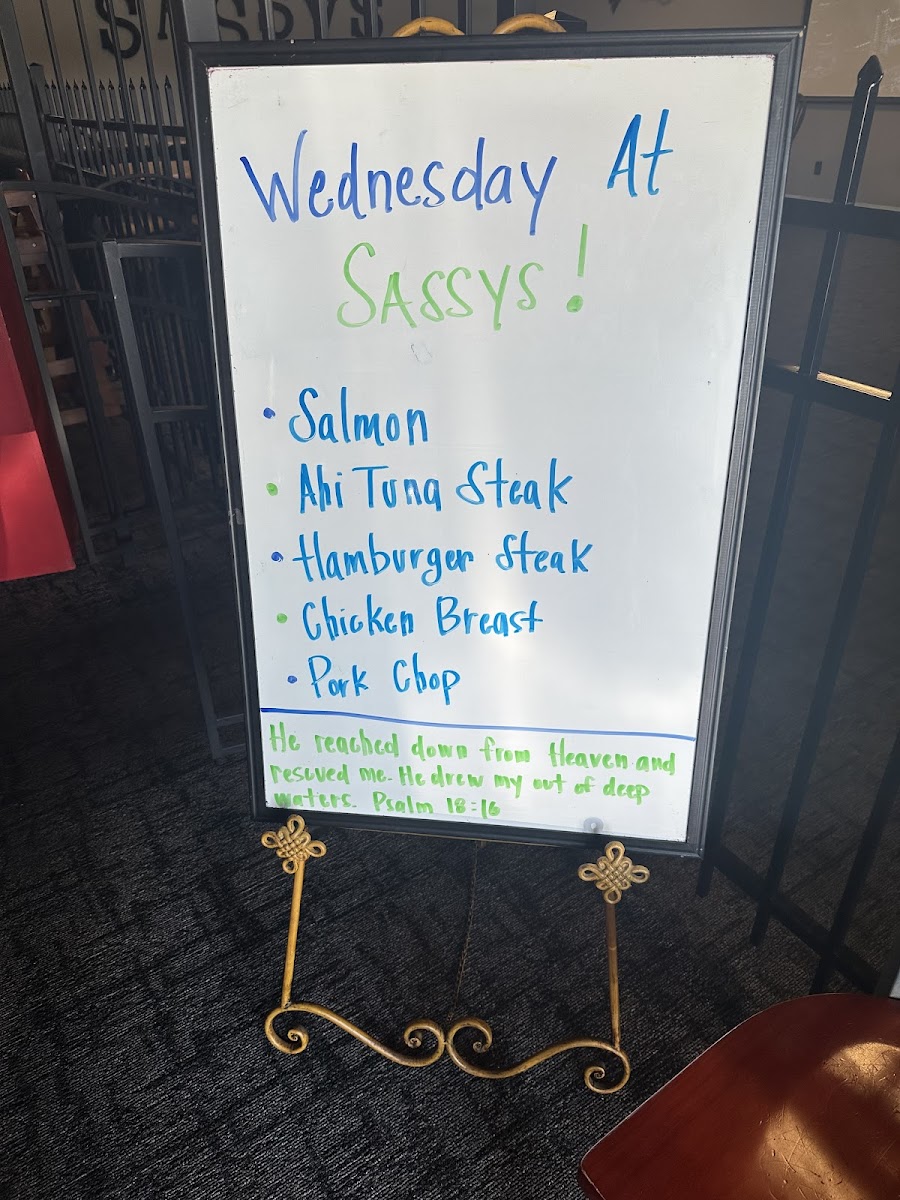 SASSYS
Wednesday At
SASSYS!
• Salmon
• Ahi Tuna Steak
• Hamburger Steak
• Chicken Breast
• Pork Chop
He reached down from Heaven and
rescued me. He drew my out of deep
waters. Psalm 18:16